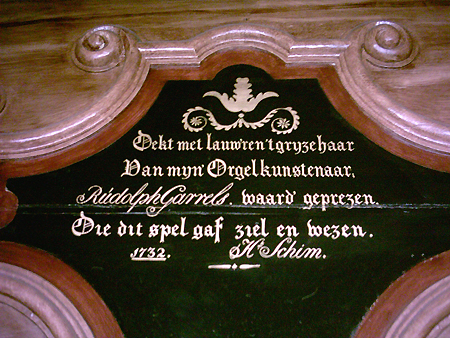 Dekt met lauw'ren 't gryzehaar
Van myn Orgelkunstenaar,
Rudolph Garrels, waard geprezen.
Die dit spel gaf ziel en wezen.
1732. Hk Schim.